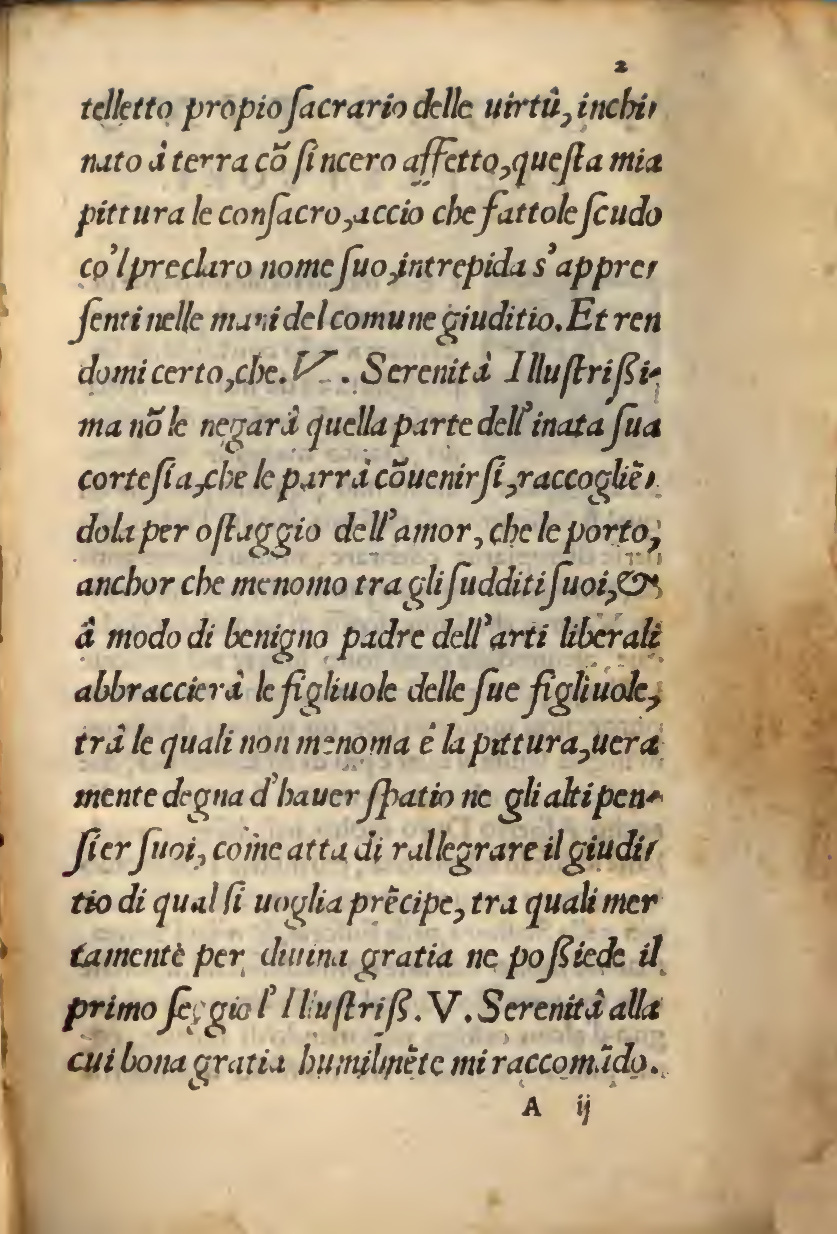 2
telletto propio ſacrario delle uirtû, inchi-
nato à terra cõ ſincero affetto, queſta mia
pittura le conſacro, accio che fattole ſcudo
co'l preclaro nome ſuo, intrepida s'appre-
ſenti nelle mani del comune giuditio. Et ren
domi certo, che. V. Serenità Illuſtriſſi-
ma nõ le negarâ quella parte dell'inata ſua
corteſia, che le parrà cõuenirſi, raccogliẽ-
dola per oſtaggio dell'amor, che le porto,
anchor che menomo tra gli ſudditi ſuoi, &
â modo di benigno padre dell'arti liberali
abbraccierà le figliuole delle ſue figliuole,
trà le quali non menoma ê la pittura, uera
mente degna d'hauer ſpatio ne gli alti pen-
ſier ſuoi, come atta di rallegrare il giudi-
tio di qual ſi uoglia prẽcipe, tra quali mer
tamentè per diuina gratia ne poſſiede il
primo ſeggio l'Illuſtriſſ. V. Serenitâ alla
cui bona gratia humilmẽte mi raccomãdo.
A ij